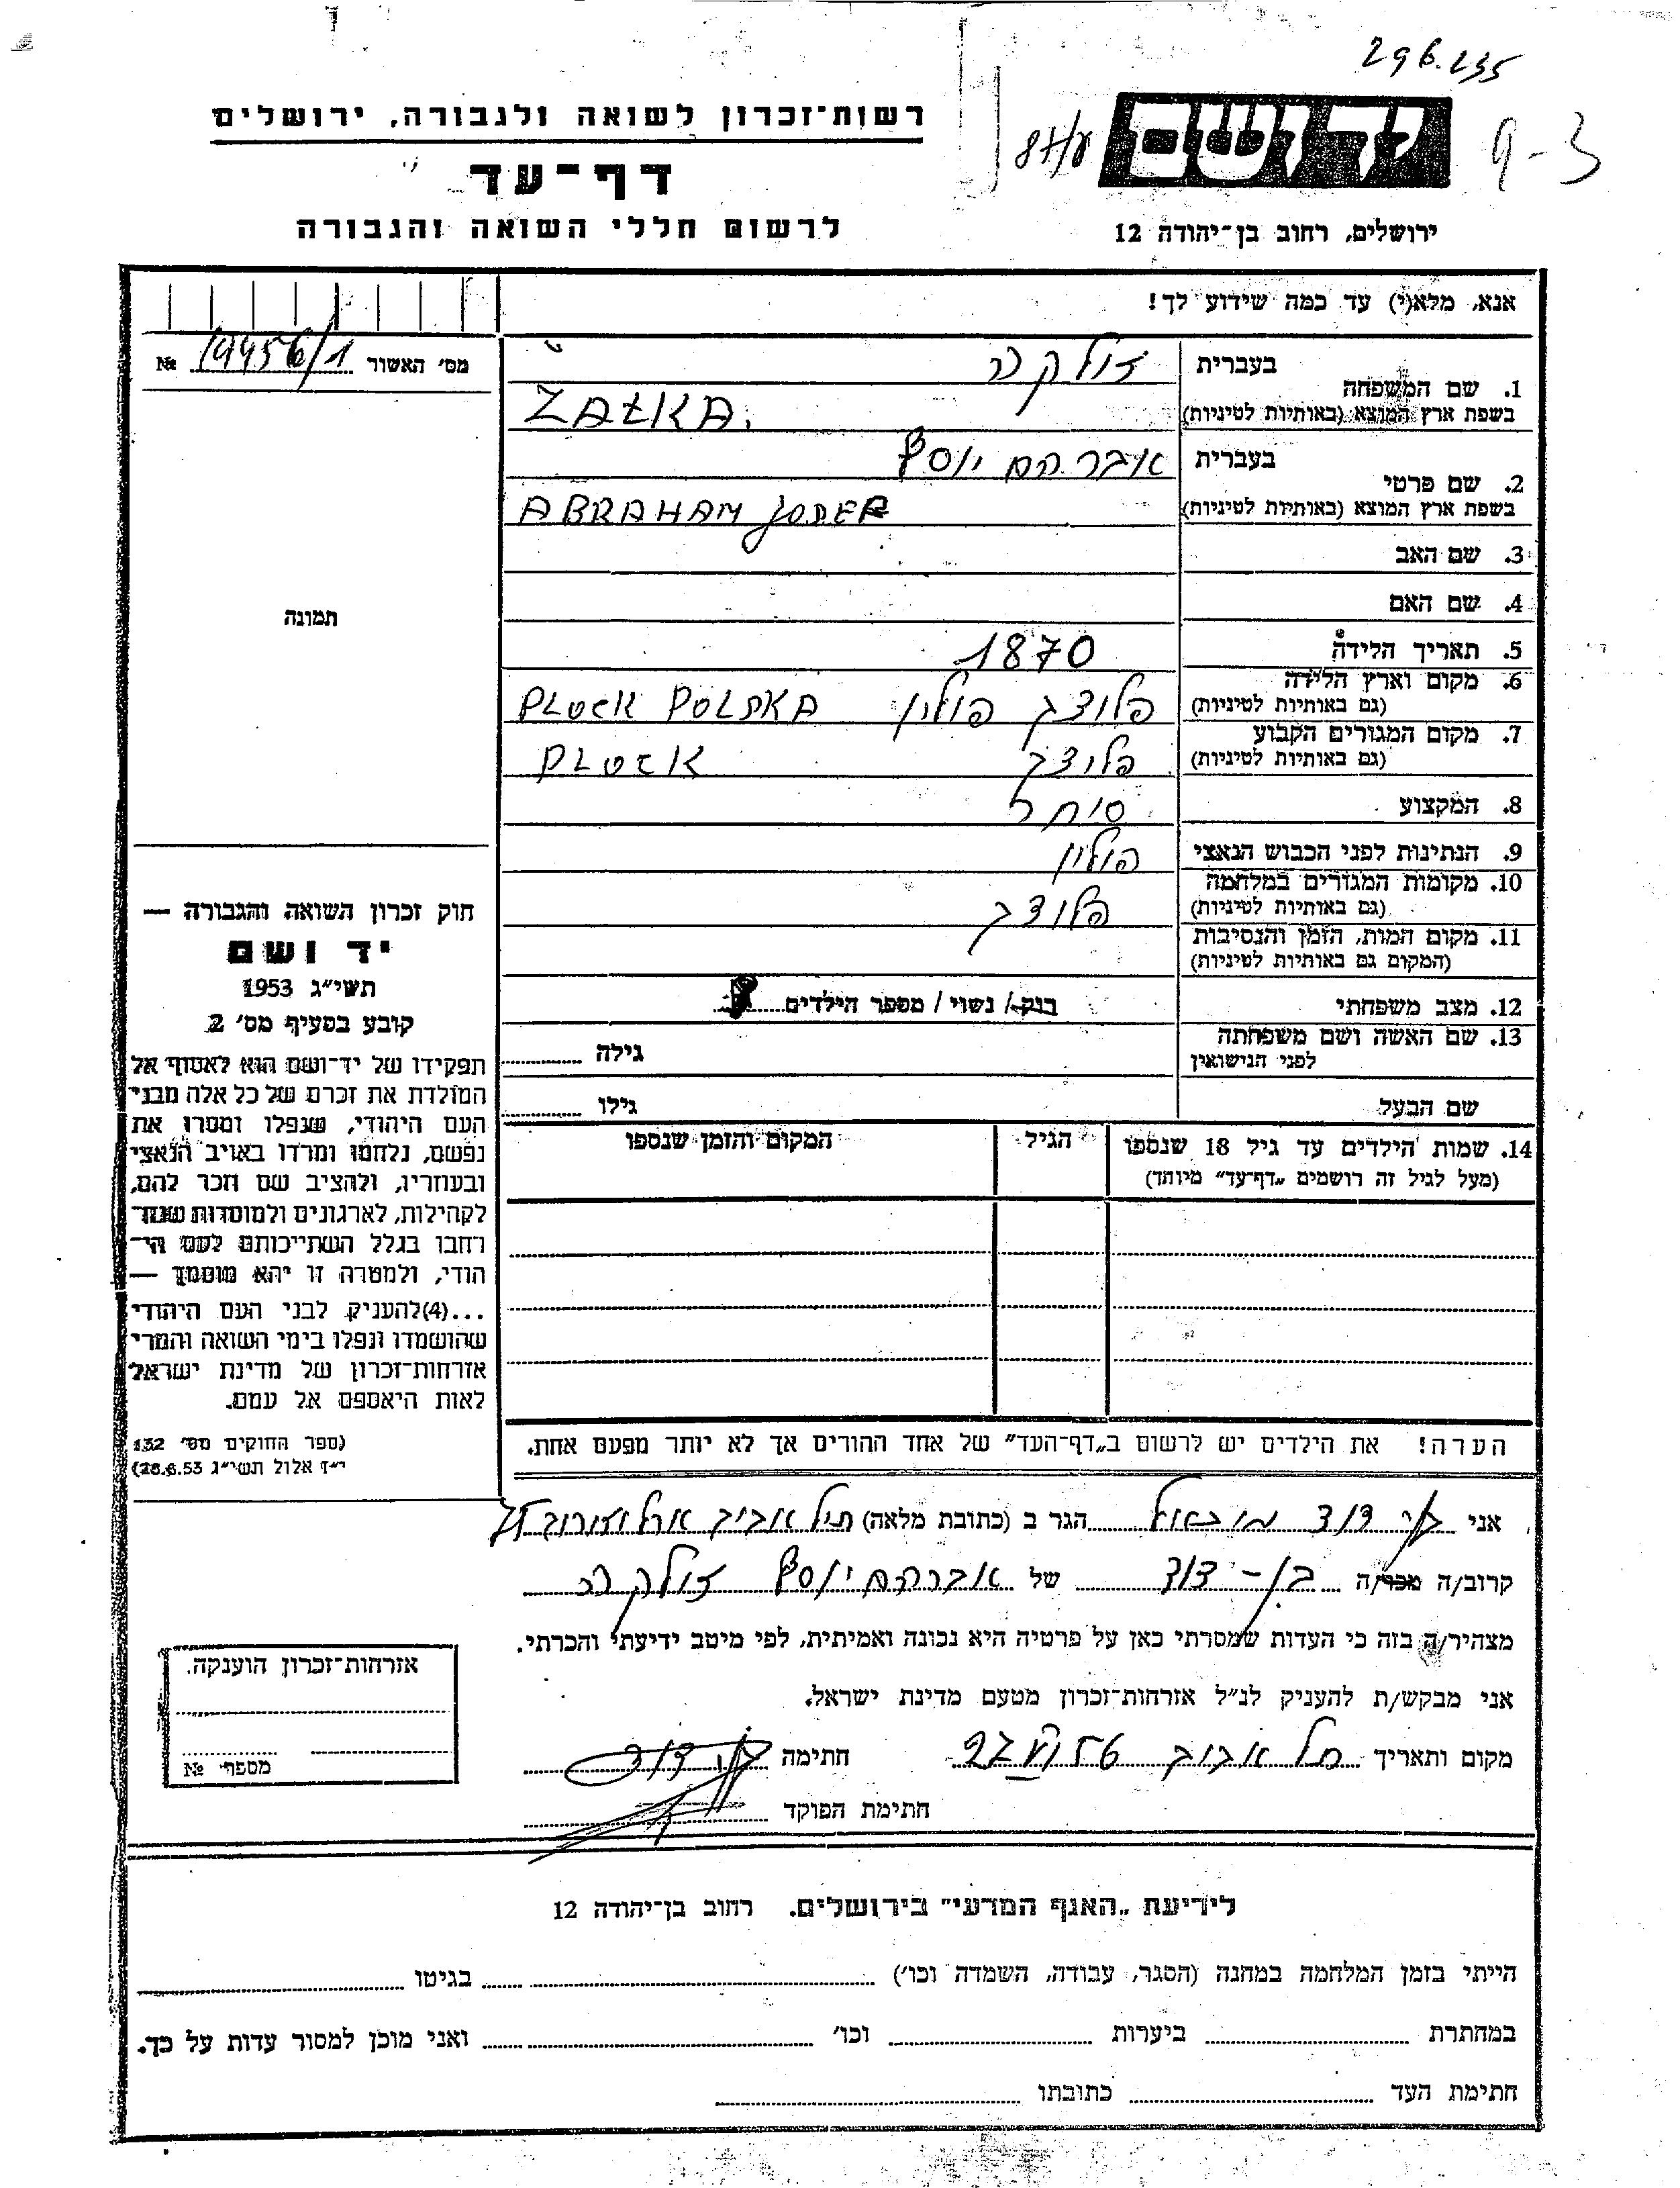 296.235
רשות־זכרון לשואה ולגבורה, ירושלים
יד ושם
9-3
דף־עד
לרשום חללי השואה והגבורה
ירושלים, רחוב בן־יהודה 12
אנא, מלא(י) עד כמה שידוע לך!
מס׳ האשור 19456/1 №
בעברית
1. שם המשפחה
בשפת ארץ המוצא (באותיות לטיניות) ZAŁKA.
בעברית אברהם יוסף
2. שם פרטי
בשפת ארץ המוצא (באותיות לטיניות) ABRAHAM
3. שם האב
4. שם האם
תמונה
5. תאריך הלידה 1870
6. מקום וארץ הלידה
(גם באותיות לטיניות) פלוצק פולין PLOCK POLSKA
7. מקום המגורים הקבוע
(גם באותיות לטיניות) פלוצק PLOCK
8. המקצוע סוחר
9. הנתינות לפני הכבוש הנאצי פולין
10. מקומות המגורים במלחמה
(גם באותיות לטיניות) פלוצק
11. מקום המות, הזמן והנסיבות
(המקום גם באותיות לטיניות)
12. מצב משפחתי רווק / נשוי / מספר הילדים
13. שם האשה ושם משפחתה
לפני הנישואין גילה
שם הבעל גילו
14. שמות הילדים עד גיל 18 שנספו הגיל המקום והזמן שנספו
(מעל לגיל זה רושמים „דף־עד״ מיוחד)
חוק זכרון השואה והגבורה —
יד ושם
תשי״ג 1953
קובע בסעיף מס׳ 2
תפקידו של יד־ושם הוא לאסוף אל
המולדת את זכרם של כל אלה מבני
העם היהודי, שנפלו ומסרו את
נפשם, נלחמו ומרדו באויב הנאצי
ובעוזריו, ולהציב שם וזכר להם,
לקהילות, לארגונים ולמוסדות שנח־
רחבו בגלל השתייכותם לעם הי־
הודי, ולמטרה זו יהא מוסמך —
...(4)להעניק לבני העם היהודי
שהושמדו ונפלו בימי השואה והמרי
אזרחות־זכרון של מדינת ישראל
לאות היאספם אל עמם.
(ספר החוקים מס׳ 132
י״ז אלול תשי״ג 28.8.53)
הערה! את הילדים יש לרשום ב„דף־העד״ של אחד ההורים אך לא יותר מפעם אחת.
אני בן דוד הגר ב (כתובת מלאה) תל אביב ארלוזורוב
קרוב/ה מכר/ה בן-דוד של אברהם יוסף
מצהיר/ה בזה כי העדות שמסרתי כאן על פרטיה היא נכונה ואמיתית, לפי מיטב ידיעתי והכרתי.
אני מבקש/ת להעניק לנ״ל אזרחות־זכרון מטעם מדינת ישראל.
מקום ותאריך תל אביב חתימה בן דוד
חתימת הפוקד
אזרחות־זכרון הוענקה.
מספר №
לידיעת „האגף המדעי״ בירושלים. רחוב בן־יהודה 12
הייתי בזמן המלחמה במחנה (הסגר, עבודה, השמדה וכו׳) בגיטו
במחתרת ביערות וכו׳ ואני מוכן למסור עדות על כך.
חתימת העד כתובתו